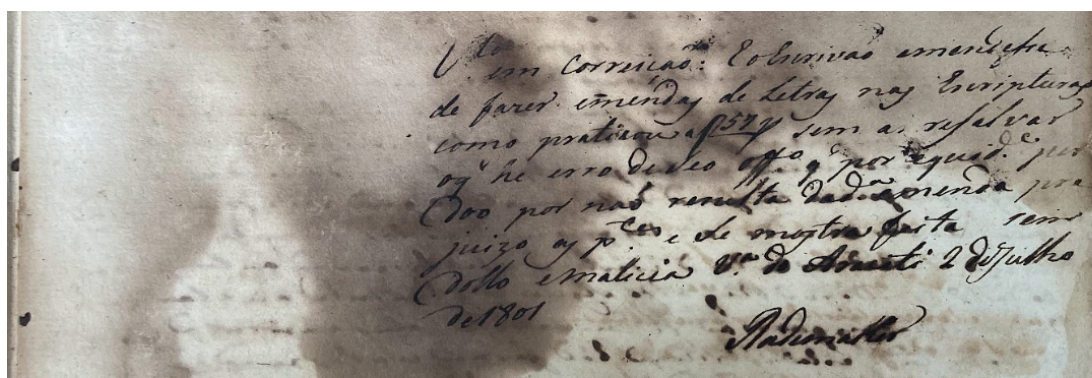 V.to em Correição: E o Escrivão emende se
de fazer emendas de Letras nas Escripturas
como praticou a f 157 v sem as resalvar
o q' he erro de seo off.o q' por equid.e per
doo por não resulta da d.a emenda pre
juizo as p.tes e se mostra feita sem
dollo e malicia V.a do Aracati 2 de Julho
de 1801
Rademaker